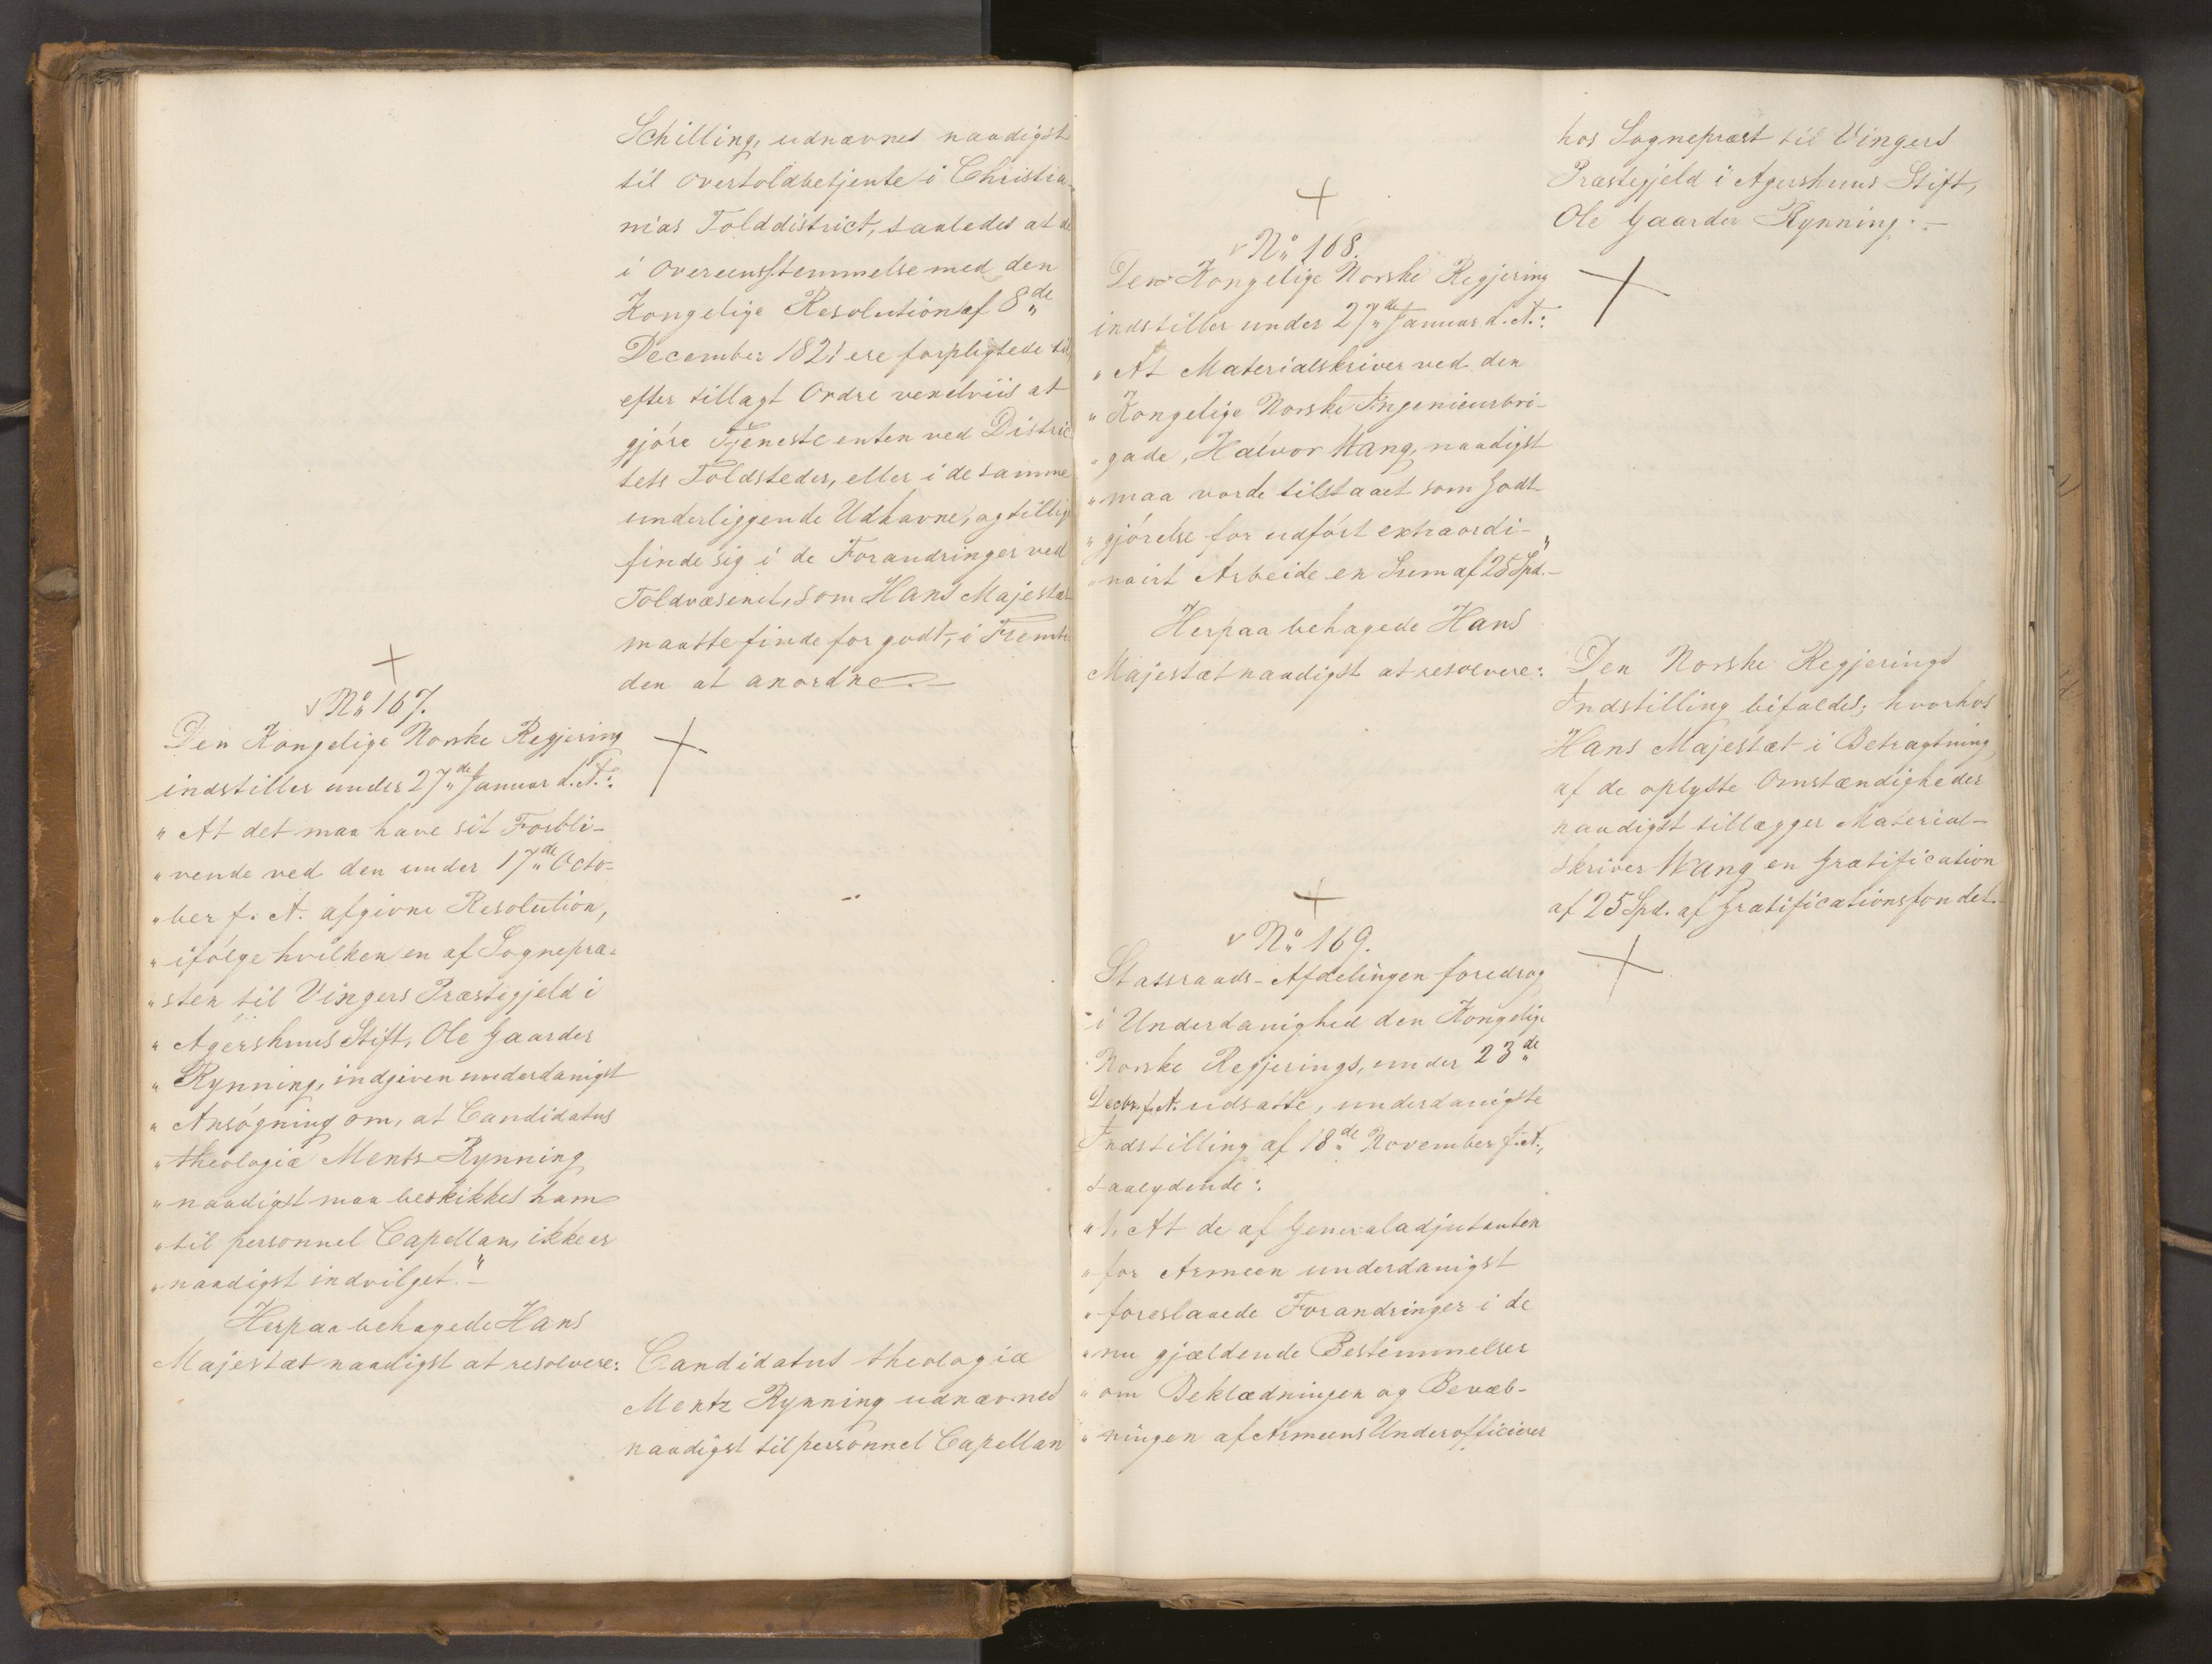 Schilling, udnævnes naadigst
til Overtoldbetjente i Christia-
nias Tolddistrict, saaledes at de
i Overeensstemmelse med den
Kongelige Resolution af 8de
December 1821 ere forpligtede til,
efter tillagt Ordre vexelviis at
gjöre Tjeneste enten ved Distric
tets Toldsteder, eller i de samme
underliggende Udhavne, og tillige
finde sig i de Forandringer ved
Toldvæsenet, som Hans Majestæt
maatte finde for godt, i Fremti
den at anordne.-
No 167.
Den Kongelige Norske Regjering
indstiller under 27de Januar d. A.:
" At det maa have sit Forbli-
" vende ved den under 17de Octo-
" ber f. A. afgivne Resolution,
" ifölge hvilken en af Sognepræ-
" sten til Vingers Præstegjeld i
" Agershuus Stift, Ole Gaarder
" Rynning, indgiven underdanigst
" Ansögning om, at Candidatus
" theologiæ Mentz Rynning
" naadigst maa beskikkes ham
" til personnel Capellan, ikke er
" naadigst indvilget."-
Herpaa behagede Hans
Majestæt naadigst at resolvere:
Candidatus theologiæ
Mentz Rynning udnævnes
naadigst til personnel Capellan
hos Sognepræst til Vingers
Præstegjeld i Agershuus Stift,
Ole Gaarder Rynning.-
No 168.
Den Kongelige Norske Regjering
indstiller under 27de Januar d. A.:
" At Materialskriver ved den
" Kongelige Norske Ingenieurbri-
" gade, Halvor Wang, naadigst
" maa vorde tilstaaet som Godt-
" gjörelse for udfört extraordi-
" nairt Arbeide en Sum af 25 Spd."-
Herpaa behagede Hans
Majestæt naadigst at resolvere:
Den Norske Regjerings
Indstilling bifaldes; hvorhos
Hans Majestæt i Betragtning
af de oplyste Omstændigheder
naadigst tillægger Material-
skriver Wang en Gratification
af 25 Spd. af Gratificationsfondet.-
No 169.
Statsraads-Afdelingen foredrog
i Underdanighed den Kongelige
Norske Regjerings, under 23de
Decbr. f. A. udsatte, underdanigste
Indstilling af 18de November f. A.,
saalydende:
" 1, At de af Generaladjutanten
" for Armeen underdanigst
" foreslaaede Forandringer i de
" nu gjældende Bestemmelser
" om Beklædningen og Bevæb-
" ningen af Armeens Underofficierer